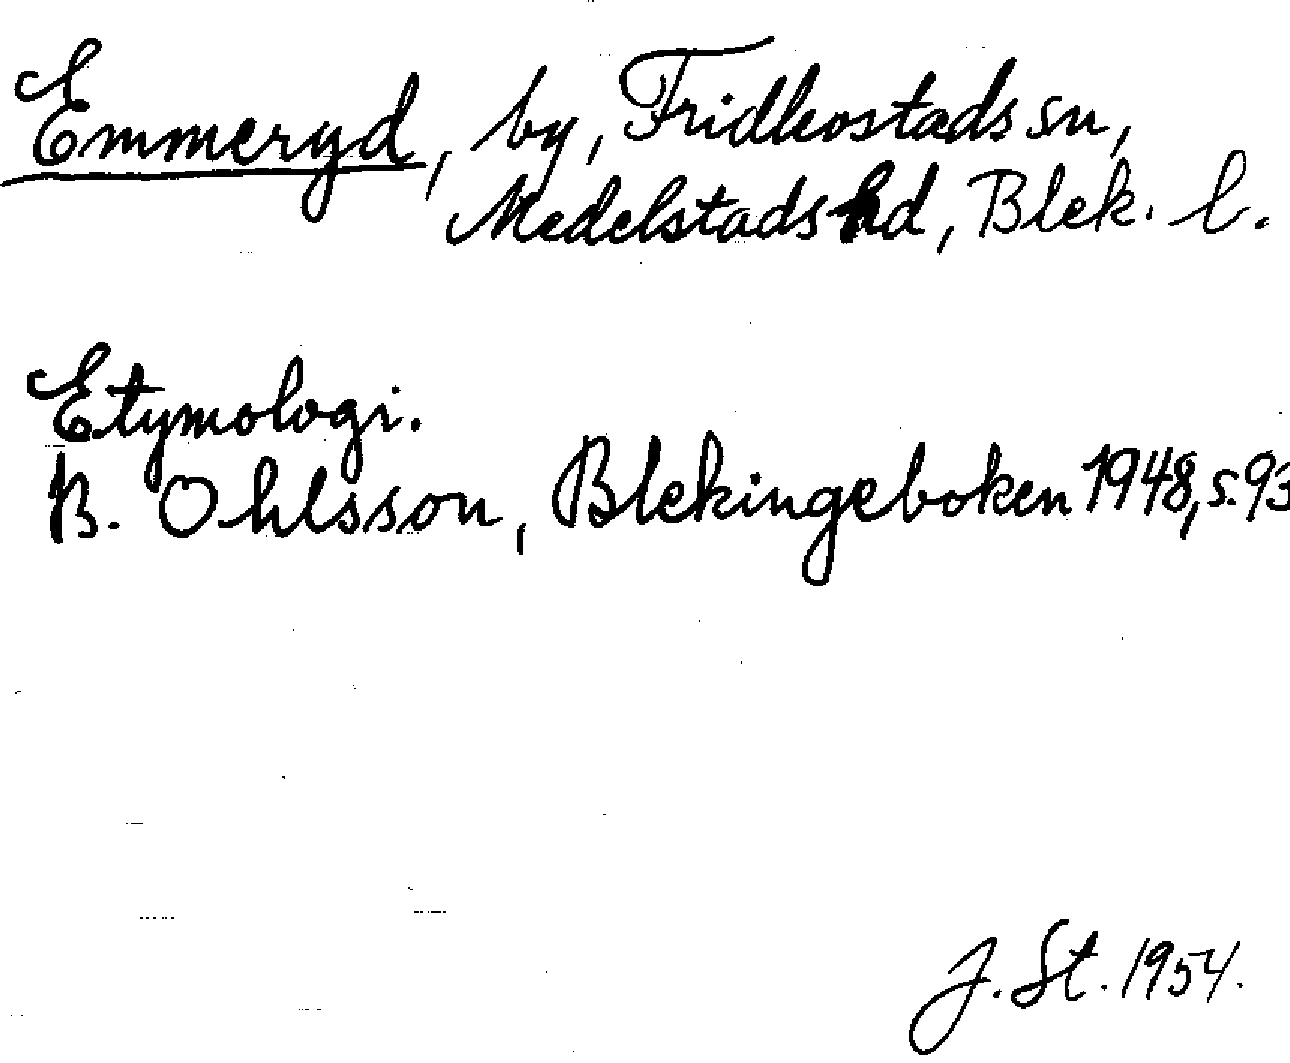 Emmeryd, by, Fridlevstads sn,
Medelstads hd, Blek. l.
Etymologi.
B. Ohlsson, Blekingeboken 1948, s. 93
J. St. 1954.